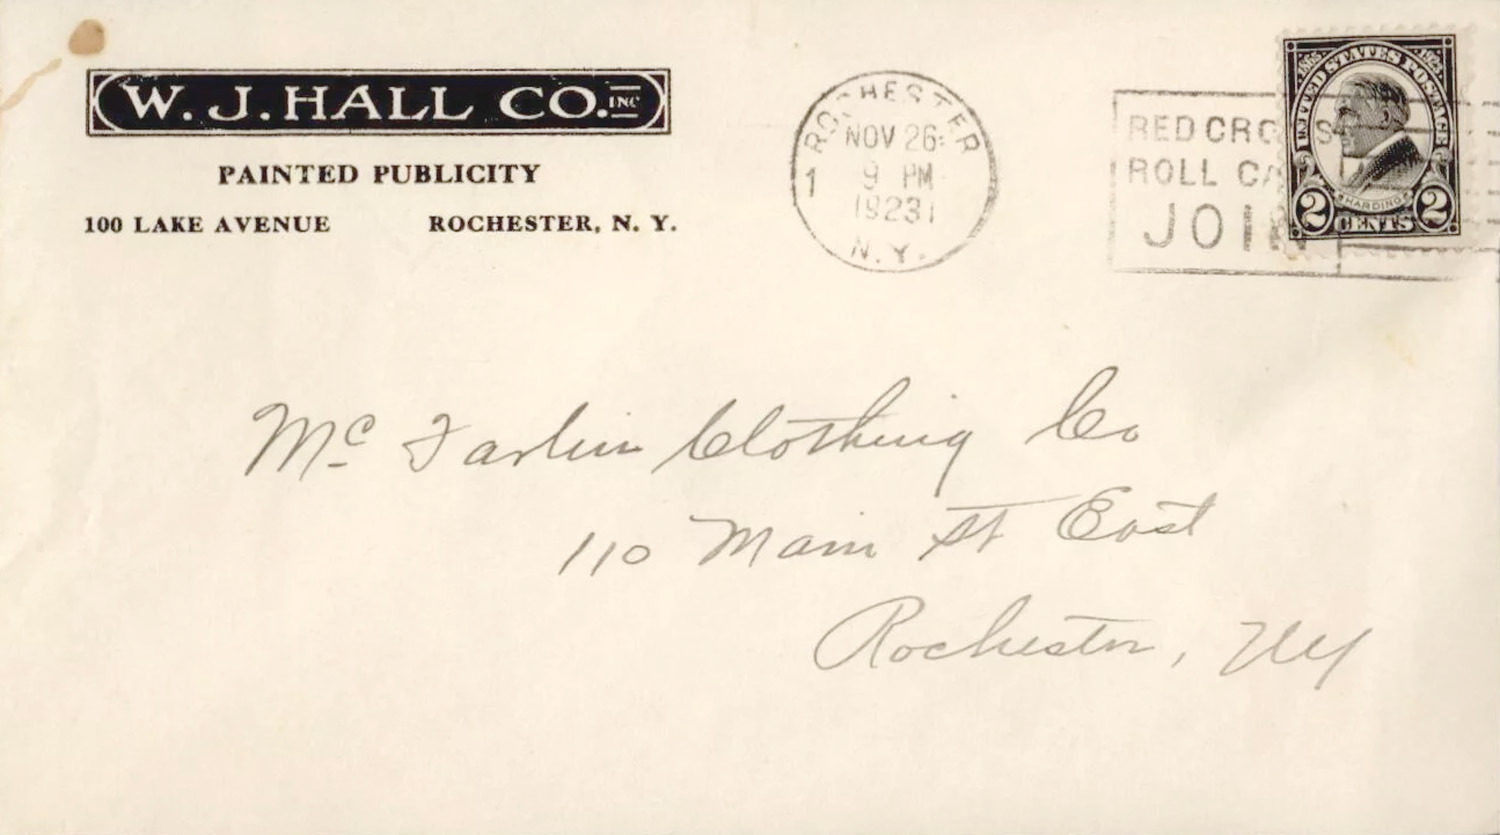 W. J. HALL CO. INC
PAINTED PUBLICITY
100 LAKE AVENUE ROCHESTER, N. Y.
ROCHESTER
NOV 26
9 PM
1
1923
N. Y.
RED CROSS
ROLL CA
JOIN
UNITED STATES POSTAGE
1865 1923
HARDING
2 CENTS 2
Mc Farlin Clothing Co
110 Main St East
Rochester, NY